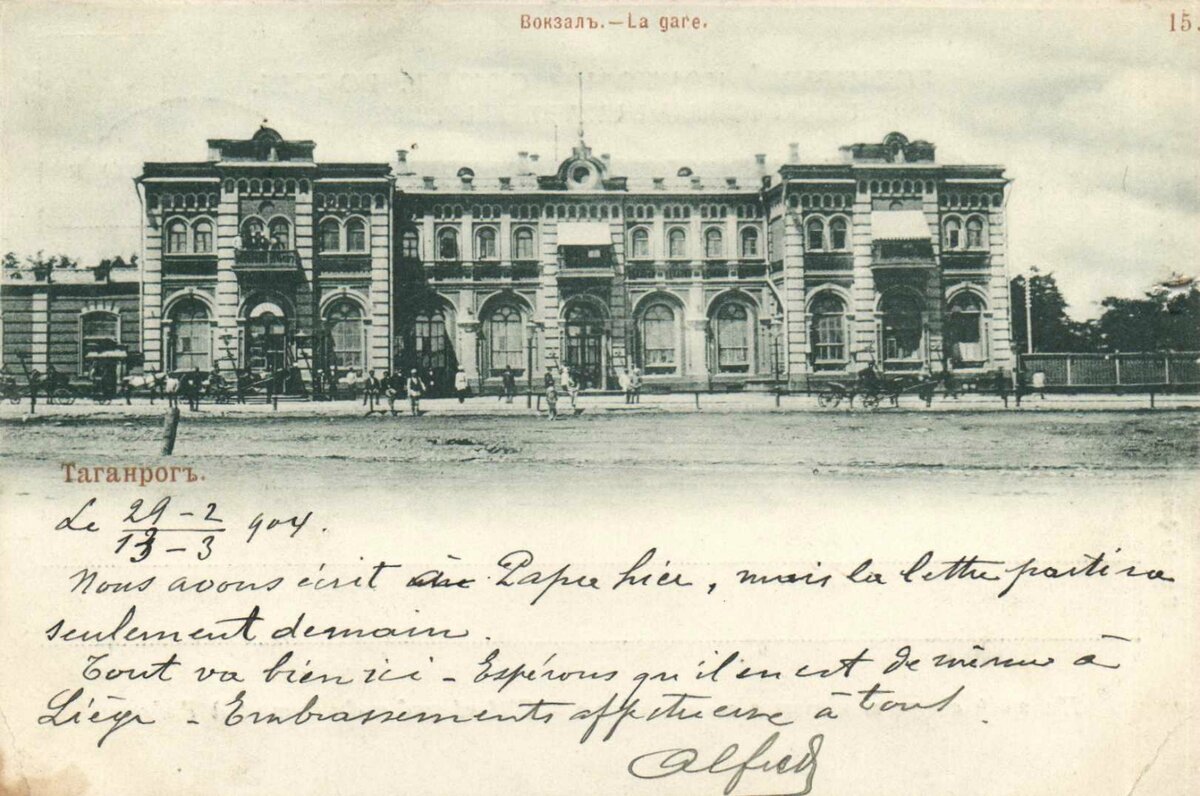 Вокзалъ.—La gare.
15.
Таганрогъ.
Le 29-2/13-3 904.
Nous avons écrit à Papa hier, mais la lettre partira
seulement demain.
Tout va bien ici - Espérons qu'il en est de même à
Liége - Embrassements affectueux à tous.
Alfred